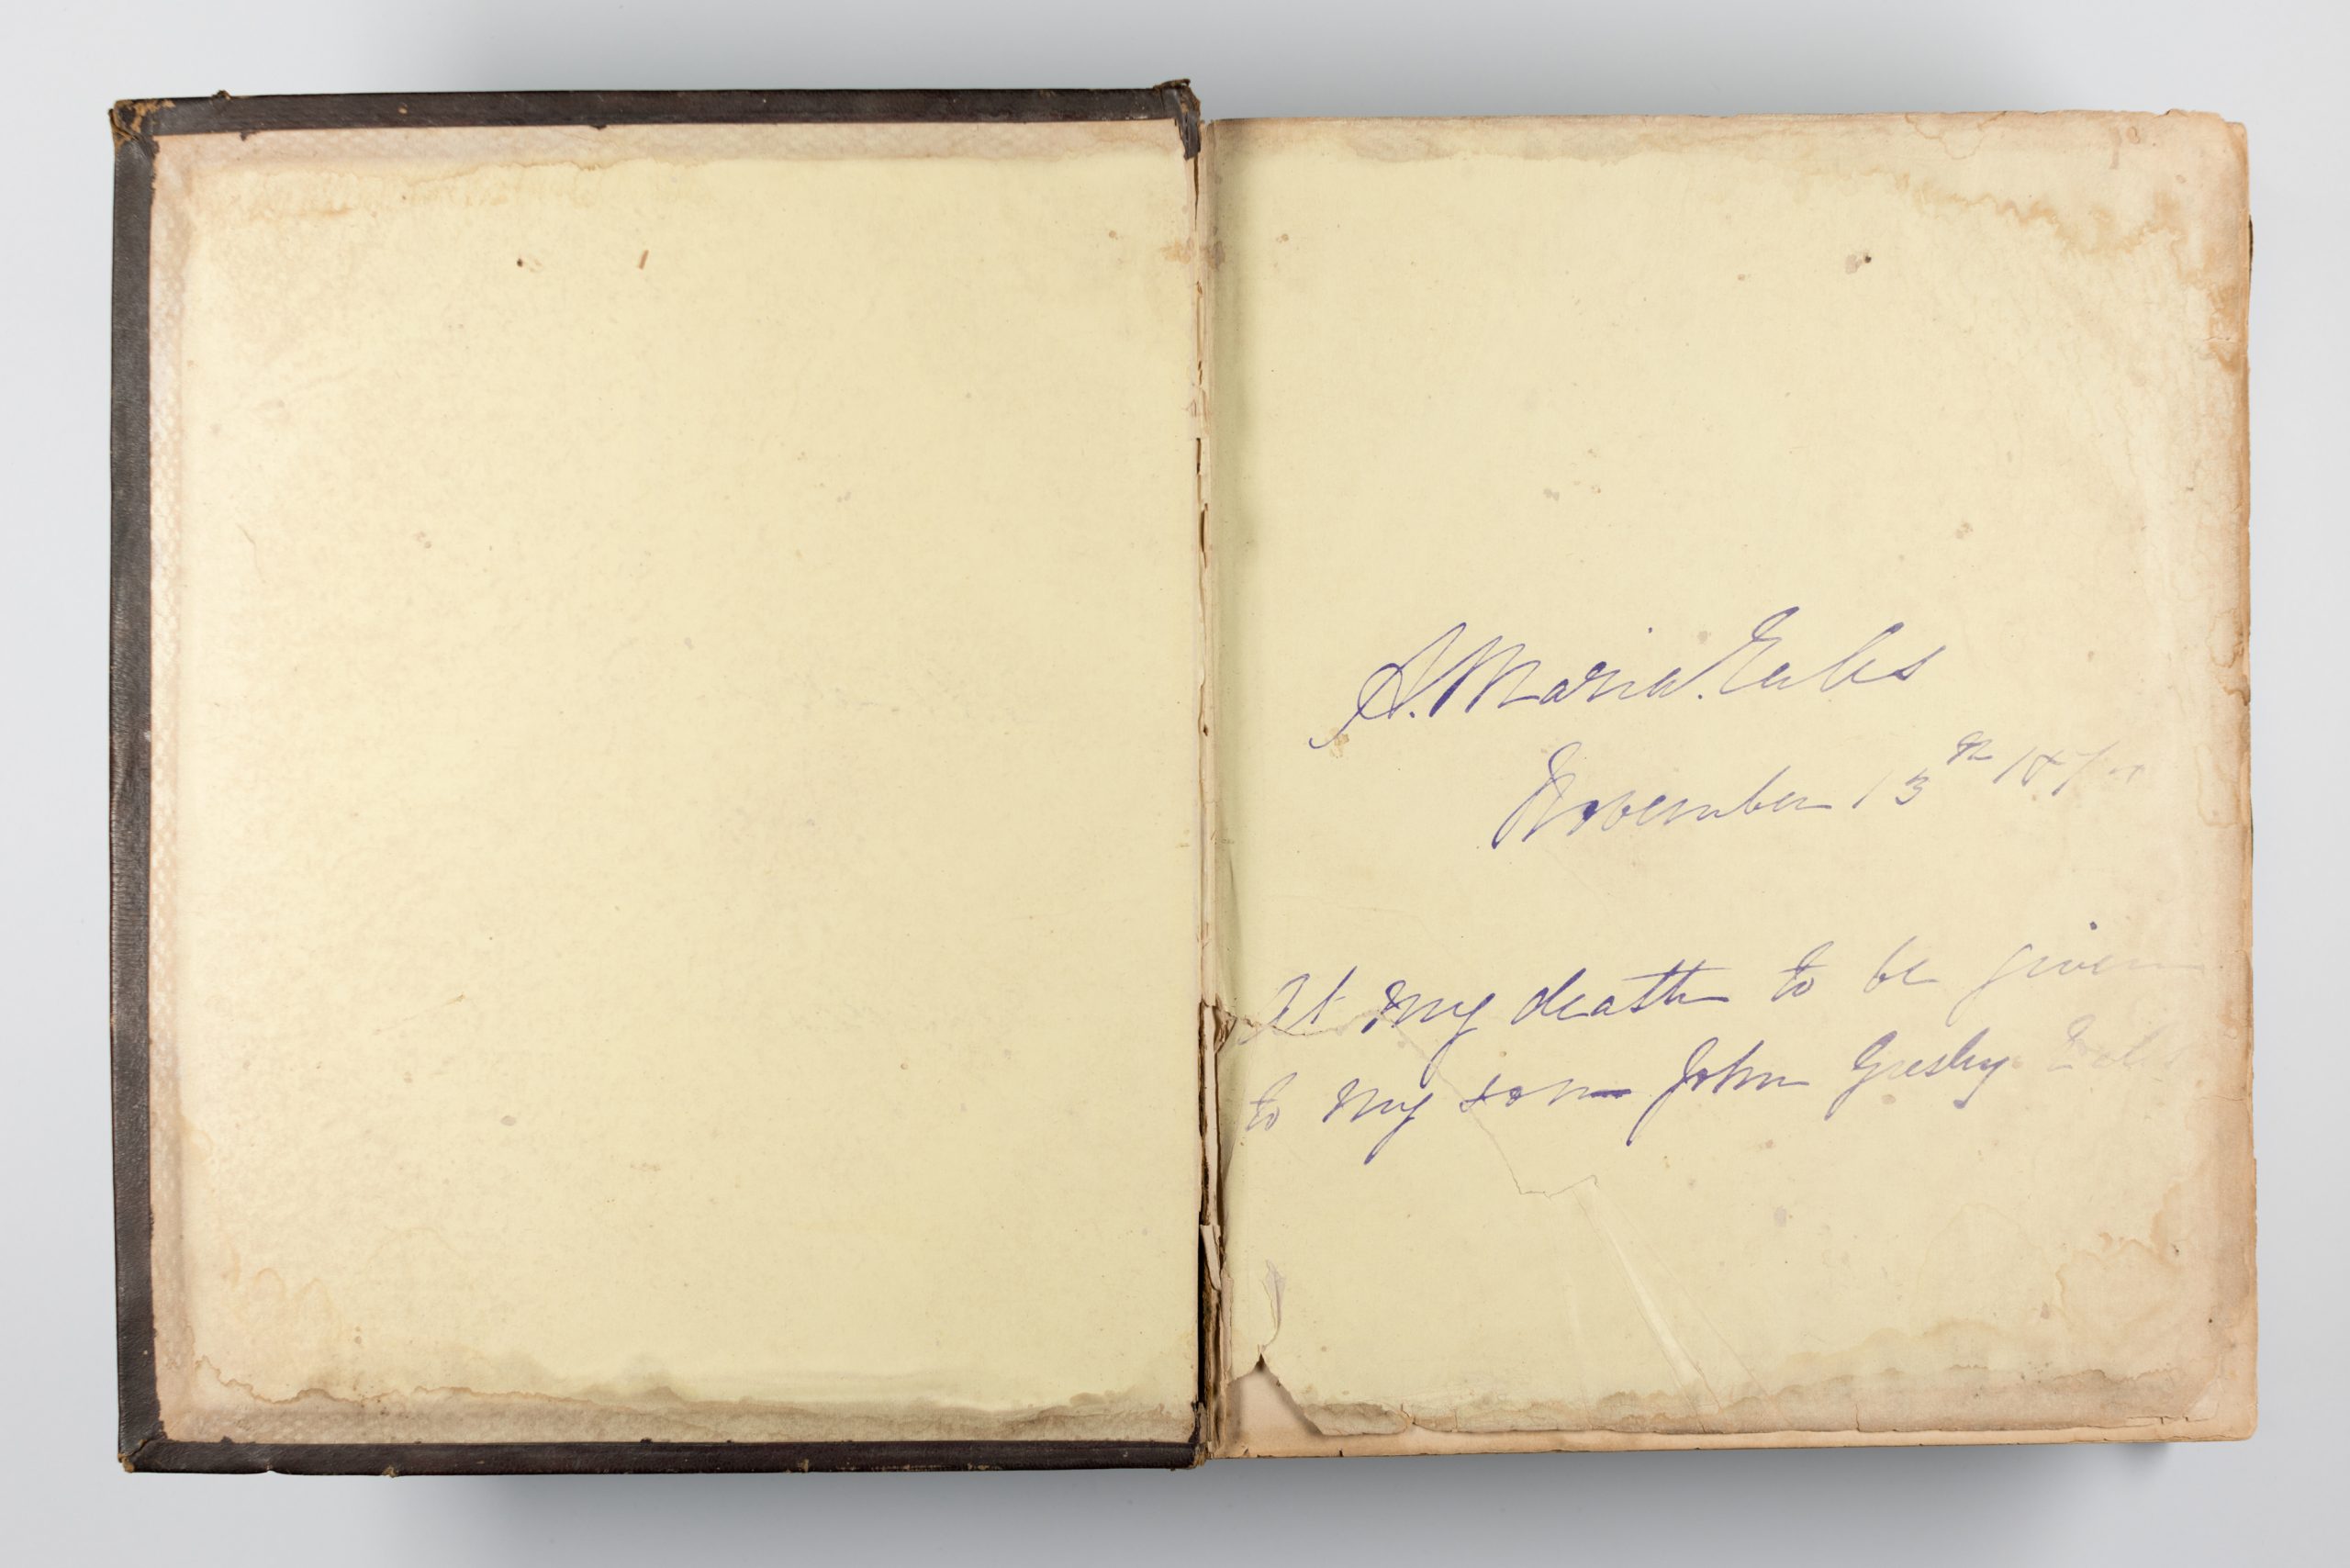 S. Maria. Eales
November 13th 187
At my death to be given
to my son John Gresley Eales